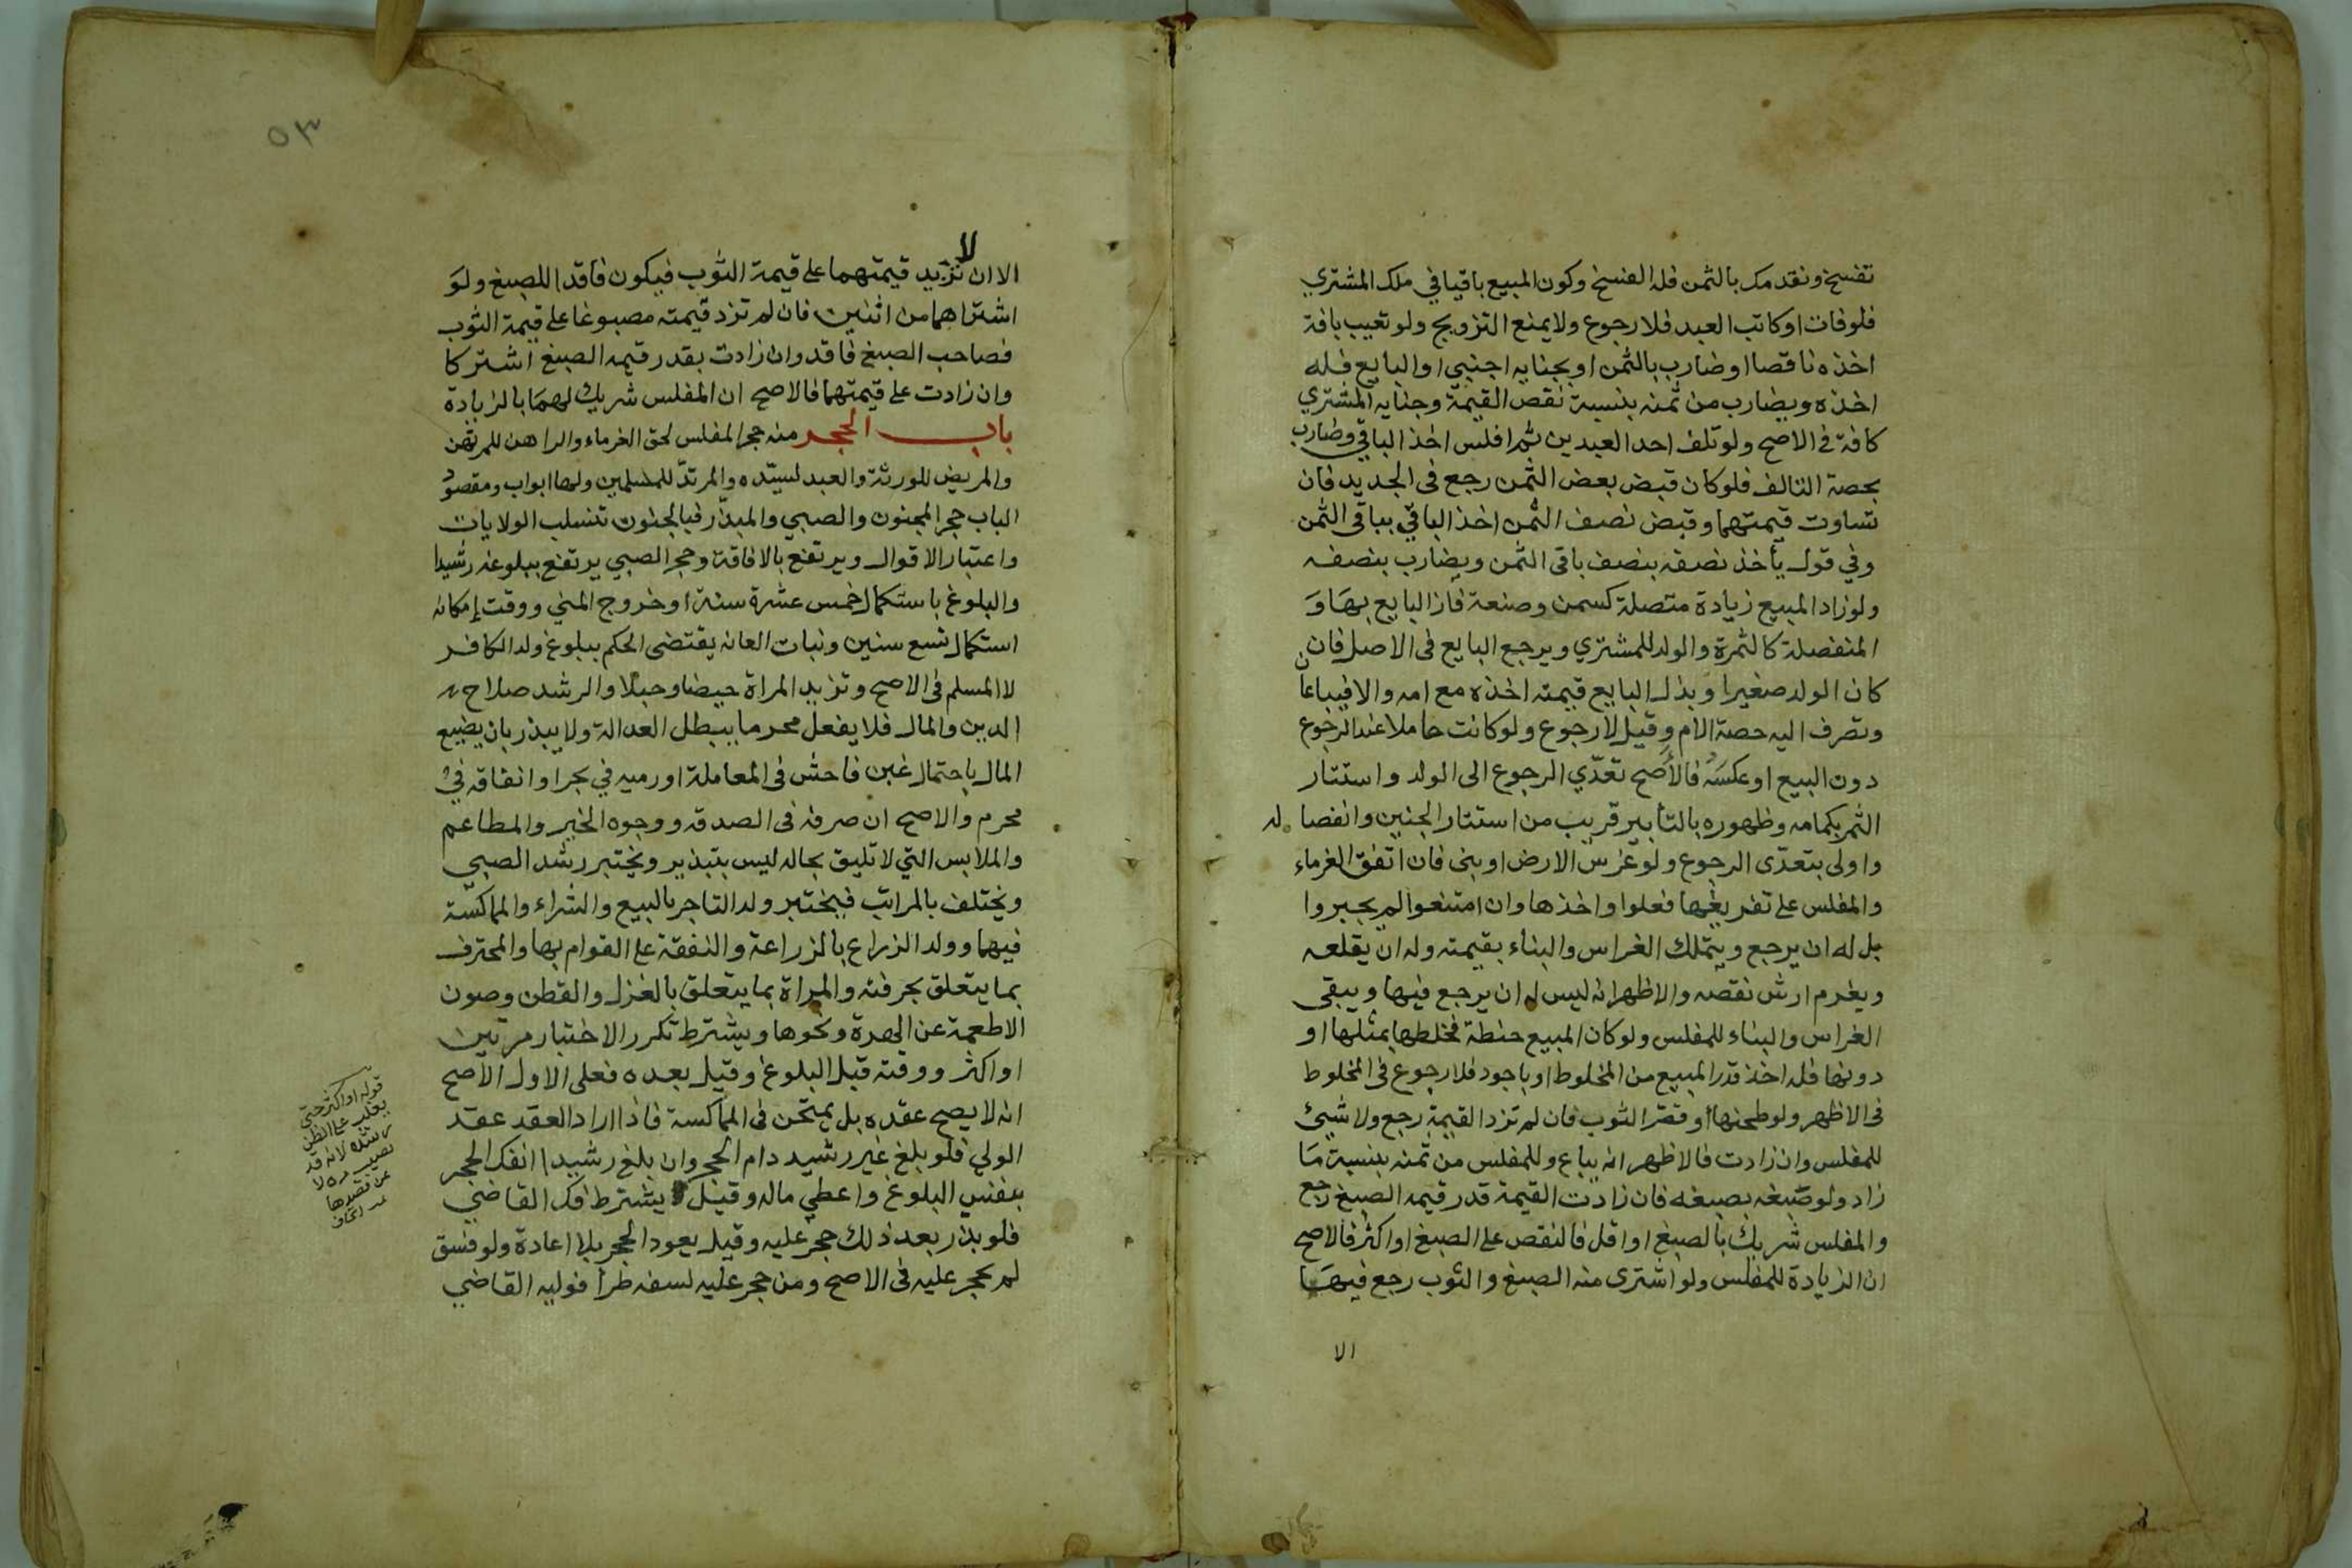 تفسخ ونقدمك بالثمن فله الفسخ وكون المبيع باقيا في ملك المشتري
فلوفات او كاتب العبد فلا رجوع ولا يمنع التزويج ولو تعيب بافة
اخذه ناقصا او ضارب بالثمن او بجنايه اجنبي او البايع فله
اخذه ويضارب من ثمنه بنسبة نقص القيمة وجنايه المشتري
كافة في الاصح ولو تلف احد العبدين ثم افلس اخذ الباقي وضارب
بحصة التالف فلو كان قبض بعض الثمن رجع في الجديد فان
تساوت قيمتهما وقبض نصف الثمن اخذ الباقي بباقي الثمن
وفي قول يأخذ نصفه بنصف باقي الثمن ويضارب بنصفه
ولو زاد المبيع زيادة متصلة كسمن وصنعة فاز البايع بها و
المنفصلة كالثمرة والولد للمشتري ويرجع البايع في الاصل فان
كان الولد صغيرا وبذل البايع قيمته اخذه مع امه والا فيباعان
وتصرف اليه حصة الام وقيل لا رجوع ولو كانت حاملا عند الرجوع
دون البيع او عكسه فالأصح تعدّي الرجوع الى الولد واستتار
الثمر بكمامه وظهوره بالتأبير قريب من استتار الجنين وانفصاله
واولى بتعدّى الرجوع ولو غرس الارض او بنى فان اتفق الغرماء
والمفلس على تفريغها فعلوا واخذها وان امتنعوا لم يجبروا
بل له ان يرجع ويتملك الغراس والبناء بقيمته وله ان يقلعه
ويغرم ارش نقصه والاظهر انه ليس له ان يرجع فيها ويبقى
الغراس والبناء للمفلس ولو كان المبيع حنطة فخلطها بمثلها او
دونها فله اخذ قدر المبيع من المخلوط او باجود فلا رجوع في المخلوط
في الاظهر ولو طحنها او قصر الثوب فان لم تزد القيمة رجع ولا شيئ
للمفلس وان زادت فالاظهر انه يباع وللمفلس من ثمنه بنسبة ما
زاد ولو صبغه بصبغه فان زادت القيمة قدر قيمه الصبغ رجع
والمفلس شريك بالصبغ او اقل فالنقص على الصبغ او اكثر فالاصح
ان الزيادة للمفلس ولو اشترى منه الصبغ والثوب رجع فيهما
الا
٥٣
لا
الا ان تزيد قيمتهما على قيمة الثوب فيكون فاقدا للصبغ ولو
اشتراهما من اثنين فان لم تزد قيمته مصبوغا على قيمة الثوب
فصاحب الصبغ فاقد وان زادت بقدر قيمه الصبغ اشتركا
وان زادت على قيمتهما فالاصح ان المفلس شريك لهما بالزيادة
باب الحجر منه حجر المفلس لحق الغرماء والراهن للمرتهن
والمريض للورثة والعبد لسيّده والمرتدّ للمسلمين ولها ابواب ومقصود
الباب حجر المجنون والصبي والمبذّر فبالجنون تنسلب الولايات
واعتبار الاقوال ويرتفع بالافاقة وحجر الصبي يرتفع ببلوغه رشيدا
والبلوغ باستكمال خمس عشرة سنة او خروج المني ووقت إمكانه
استكمال تسع سنين ونبات العانه يقتضى الحكم ببلوغ ولد الكافر
لا المسلم في الاصح وتزيد المراة حيضا وحبلا والرشد صلاح
الدين والمال فلا يفعل محرما يبطل العدالة ولا يبذر بان يضيع
المال باحتمال غبن فاحش في المعاملة او رميه في بحر او انفاقه في
محرم والاصح ان صرفه في الصدقه ووجوه الخير والمطاعم
والملابس التي لا تليق بحاله ليس بتبذير ويختبر رشد الصبي
ويختلف بالمراتب فيختبر ولد التاجر بالبيع والشراء والمماكسة
فيهما وولد الزراع بالزراعة والنفقة على القوام بها والمحترف
بما يتعلق بحرفته والمراة بما يتعلق بالغزل والقطن وصون
الاطعمة عن الهرة ونحوها ويشترط تكرر الاختبار مرتين
او اكثر ووقته قبل البلوغ وقيل بعده فعلى الاول الأصح
انه لا يصح عقده بل يمتحن في المماكسة فاذا اراد العقد عقد
الولي فلو بلغ غير رشيد دام الحجر وان بلغ رشيدا انفك الحجر
بنفس البلوغ واعطي ماله وقيل يشترط فك القاضي
فلو بذر بعد ذلك حجر عليه وقيل يعود الحجر بلا اعادة ولو فسق
لم يحجر عليه في الاصح ومن حجر عليه لسفه طرأ فوليه القاضي
قوله او اكثر حتى
يغلب على الظن
رشده لانه قد
يصيب مره لا
عن قصدها